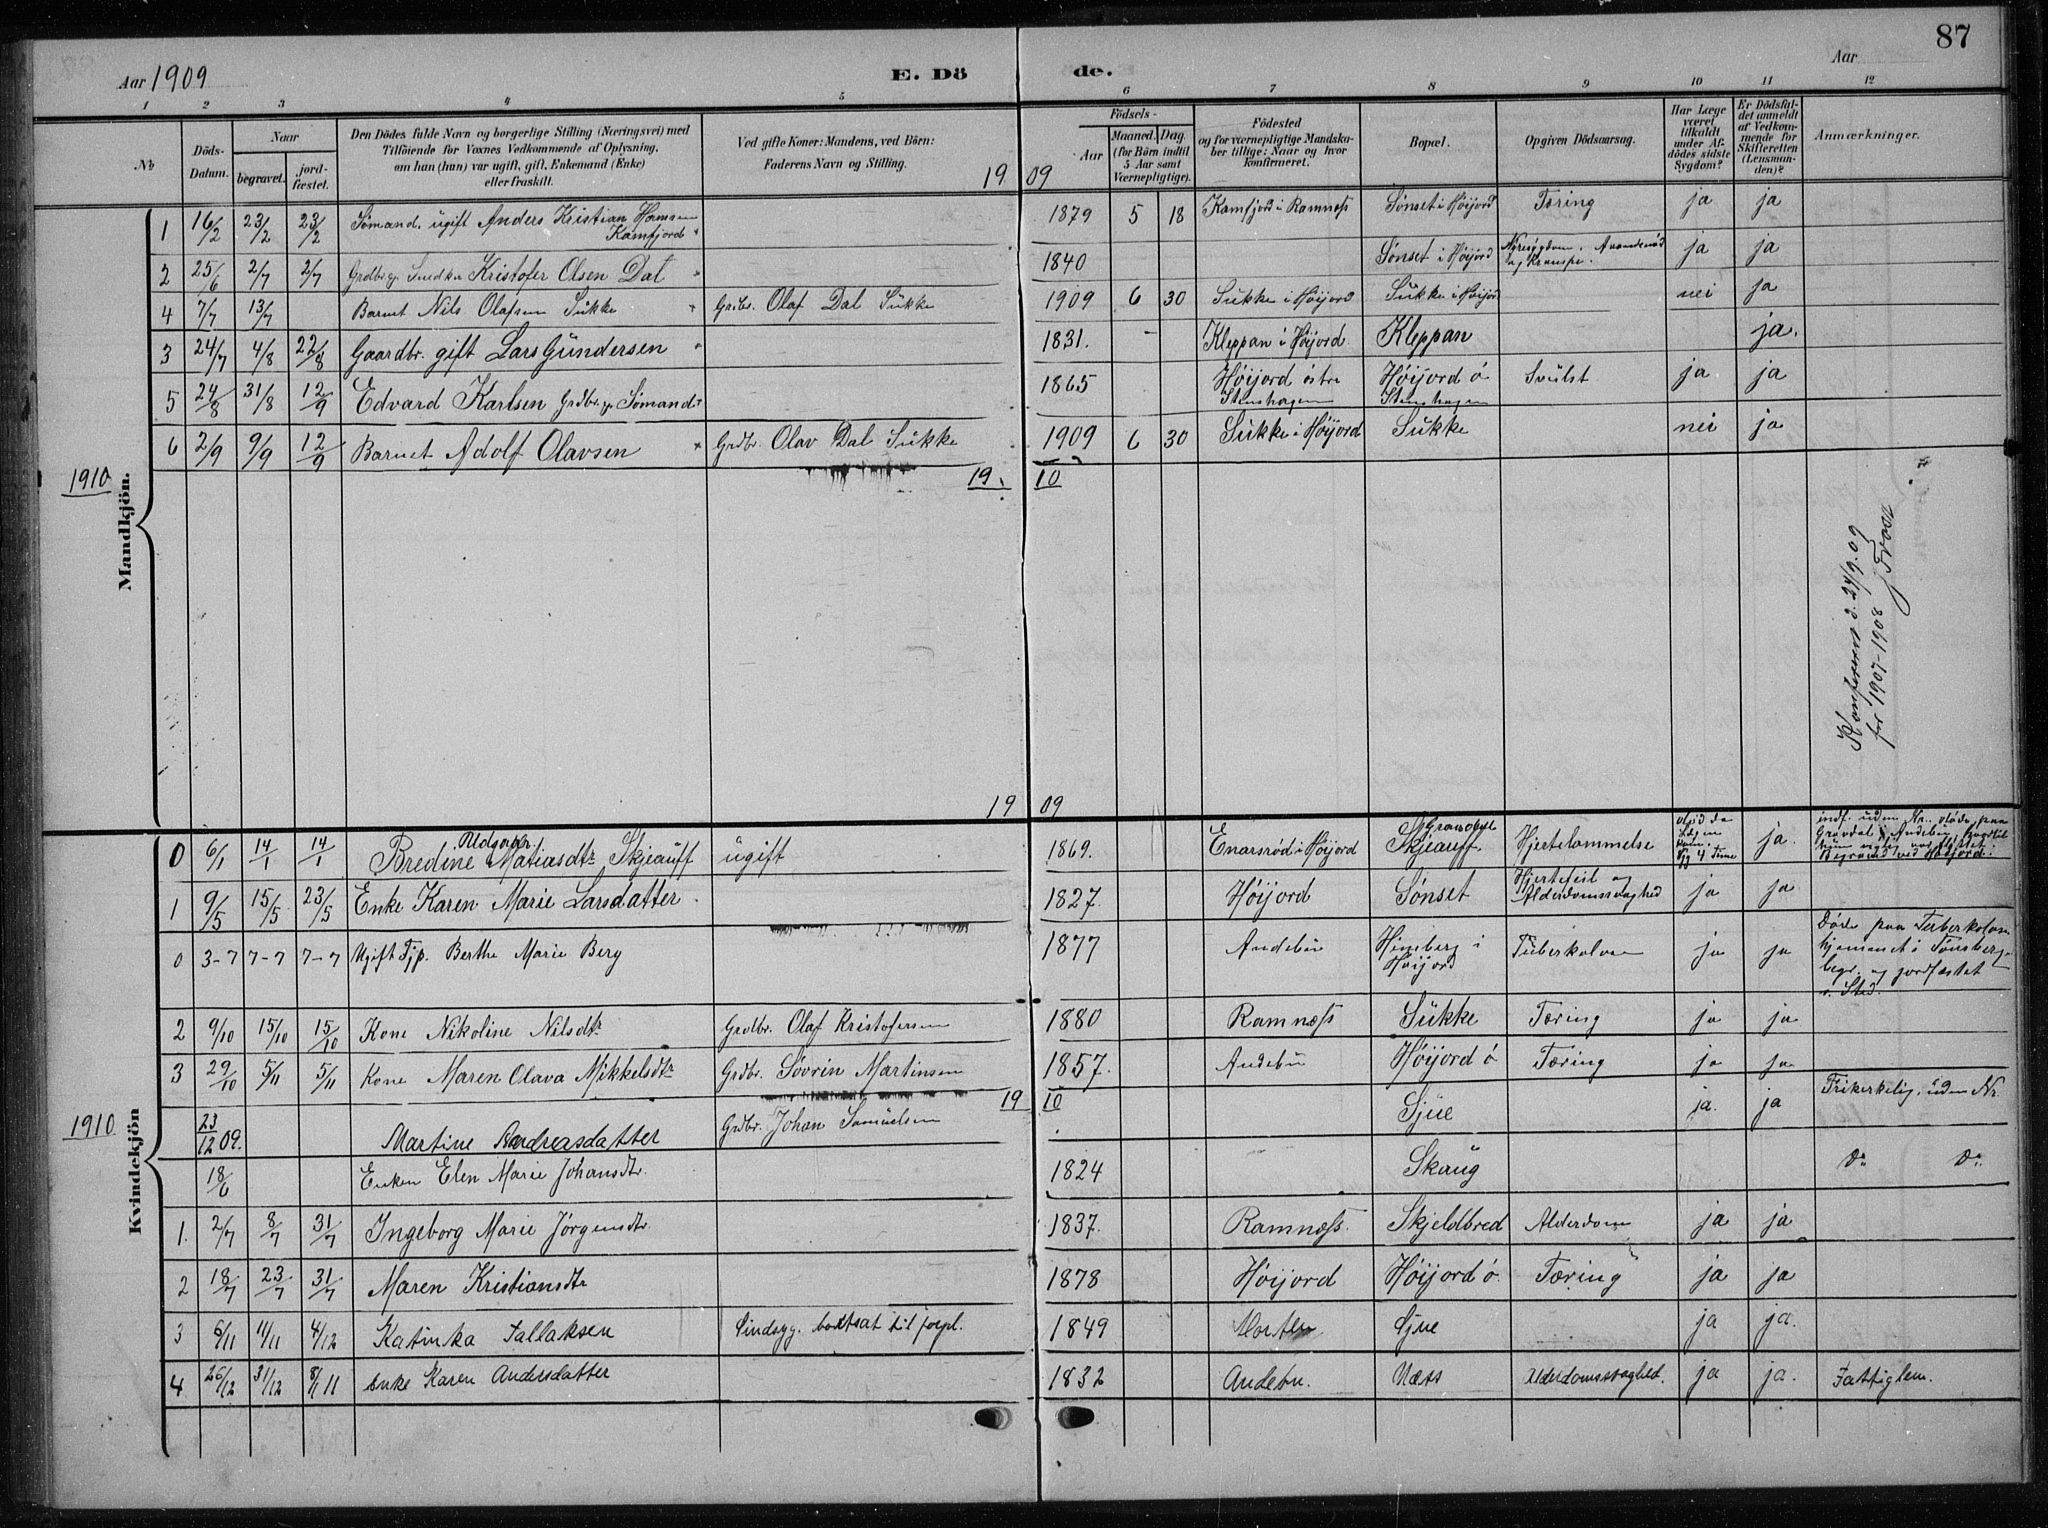 87
Aar 1909
E. Dö
de.
Aar
1 2 3 4 5 6 7 8 9 10 11 12
No
Döds-Datum.
Naar
begravet.
jord-fæstet.
Den Dödes fulde Navn og borgerlige Stilling (Næringsvei) med
Tilföiende for Voxnes Vedkommende af Oplysning,
om han (hun) var ugift, gift, Enkemand (Enke)
eller fraskilt.
Ved gifte Koner: Mandens, ved Börn:
Faderens Navn og Stilling.
Födsels-
Aar
Maaned. Dag.
(for Börn indtil
5 Aar samt
Værnepligtige).
Födested
og for værnepligtige Mandska-
ber tillige: Naar og hvor
konfirmeret.
Bopæl.
Opgiven Dödsaarsag.
Har Læge
været
tilkaldt
under Af-
dödes sidste
Sygdom?
Er Dödsfal-
det anmeldt
af Vedkom-
mende for
Skifteretten
(Lensman-
den)?
Anmærkninger.
1909
Mandkjön.
1 16/2 23/2 23/2 Sømand, ugift Anders Kristian Hansen Kamfjord 1879 5 18 Kamfjord i Ramnæss Sønset i Høijord Tæring ja ja
2 25/6 2/7 2/7 Grdbr. Snedker Kristofer Olsen Dal 1840 Sønset i Høijord Nyresygdom, og Krampe. ja ja
4 7/7 13/7 Barnet Nils Olafsen Sukke Grbr. Olaf Dal Sukke 1909 6 30 Sukke i Høijord Sukke i Høijord nei ja
3 24/7 4/8 22/8 Gaardbr. gift Lars Gundersen 1831. - Kleppan i Høijord Kleppan ja.
5 24/8 31/8 12/9 Edvard Karlsen Grdbr. Sømand 1865 Høijord østre Stenshagen Høijord ø Stenshagen Svulst ja ja
6 2/9 9/9 12/9 Barnet Adolf Olavsen Grdbr. Olav Dal Sukke 1909 6 30 Sukke i Høijord Sukke nei ja
1910 1910
Konfereret d. 24/9.09
for 1907-1908
1909
Kvindekjön
0 6/1 14/1 14/1 Bredine Matiasdtr. Skjeauff ugift 1869. Enarsrød i Høijord Skjeauff Hjertelammelse ja. indf. uden Nr. døde paa
Gravdal i Andebu,
Begravet ved Høijord.
1 9/5 15/5 23/5 Enke Karen Marie Larsdatter 1827. Høijord Sønset Hjertefeil og Alderdomssvaghed ja ja
0 3-7 7-7 7-7 Ugift Tjp. Berthe Marie Berg 1877 Andebu Hineberg i Høijord Tuberkulose ja ja Døde paa Tuberkulose
hjemmet i Tønsberg
begr. og jordfæstet
s. Sted.
2 9/10 15/10 15/10 Kone Nikoline Nilsdtr Grdbr. Olaf Kristofersen 1880 Ramnæss Sukke Tæring ja ja
3 29/10 5/11 5/11 Kone Maren Olava Mikkelsdtr Grdbr. Søvrin Martinsen 1857. Andebu Høijord ø Tæring ja ja.
1910 1910
23/12 09. Martine Andreasdatter Grdbr. Johan Samuelsen Sjue ja. ja Frikirkelig, uden Nr.
18/6 Enken Elen Marie Johansdtr. 1824 Skaug Do Do
1. 2/7 8/7 31/7 Ingeborg Marie Jørgensdtr. 1837. Ramnæss. Skjeldbred Alderdom ja ja
2 18/7 23/7 31/7 Maren Kristiansdtr 1878 Høijord Høijord ø. Tæring ja ja
3 6/11 11/11 4/12 Katinka Tallaksen Sindsyg. bortsat til forpl. 1849 Horten Sjue ja ja.
4 26/12 31/12 8/1 11 Enke Karen Andersdatter 1832 Andebu. Næss Alderdomssvaghed. ja ja. Fattiglem.